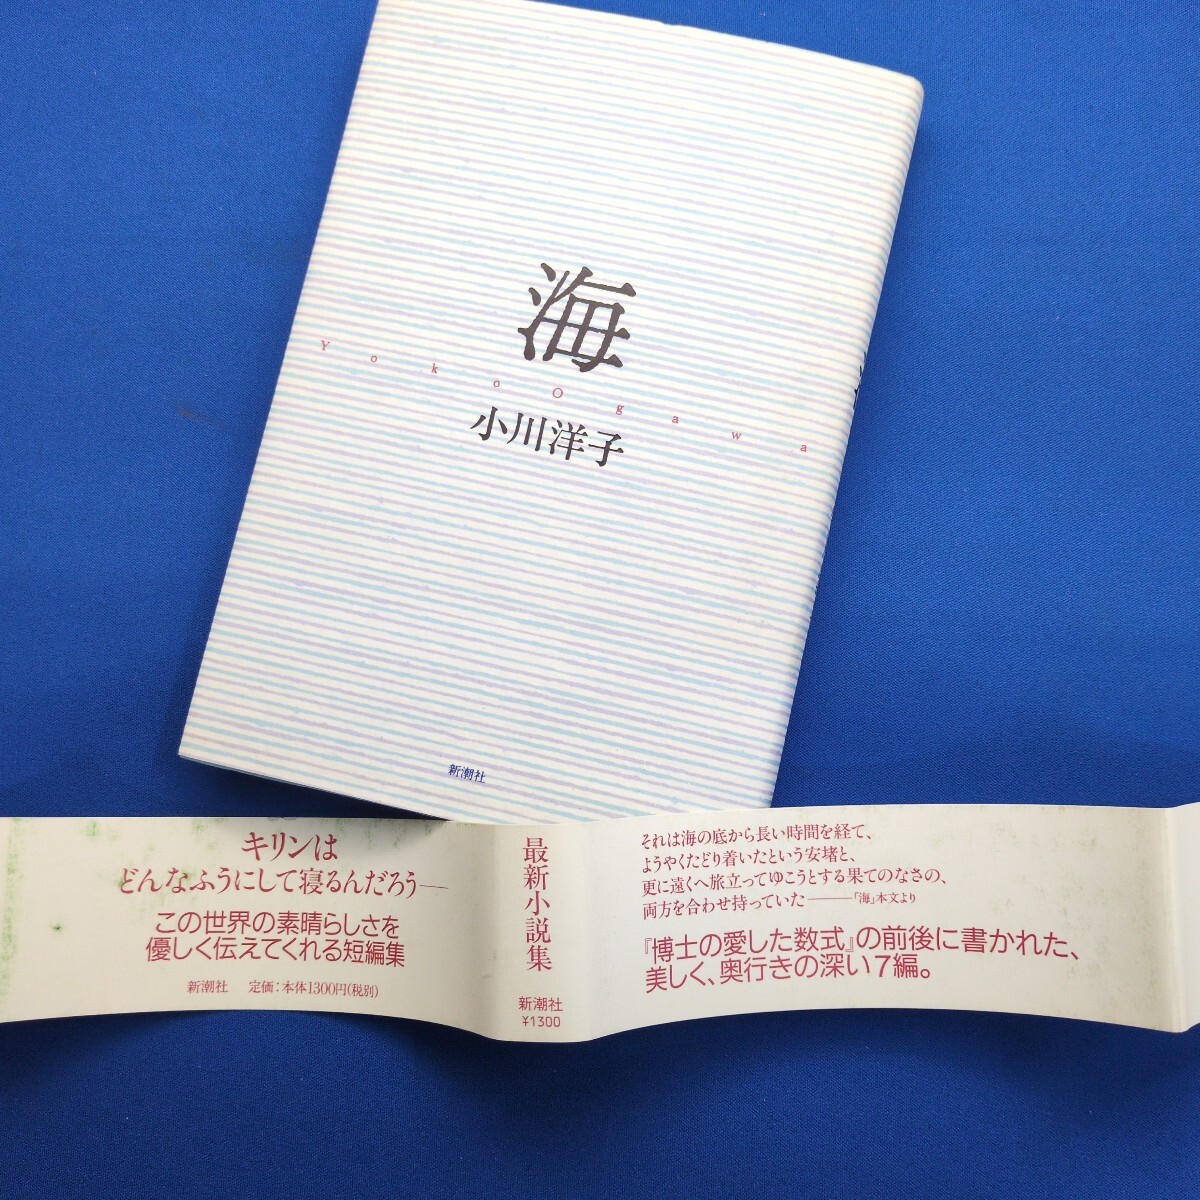 海
Yoko Ogawa
小川洋子
新潮社
キリンは
どんなふうにして寝るんだろう——
この世界の素晴らしさを
優しく伝えてくれる短編集
新潮社 定価：本体1300円(税別)
最新小説集
新潮社
¥1300
それは海の底から長い時間を経て、
ようやくたどり着いたという安堵と、
更に遠くへ旅立ってゆこうとする果てのなさの、
両方を合わせ持っていた———「海」本文より
『博士の愛した数式』の前後に書かれた、
美しく、奥行きの深い7編。